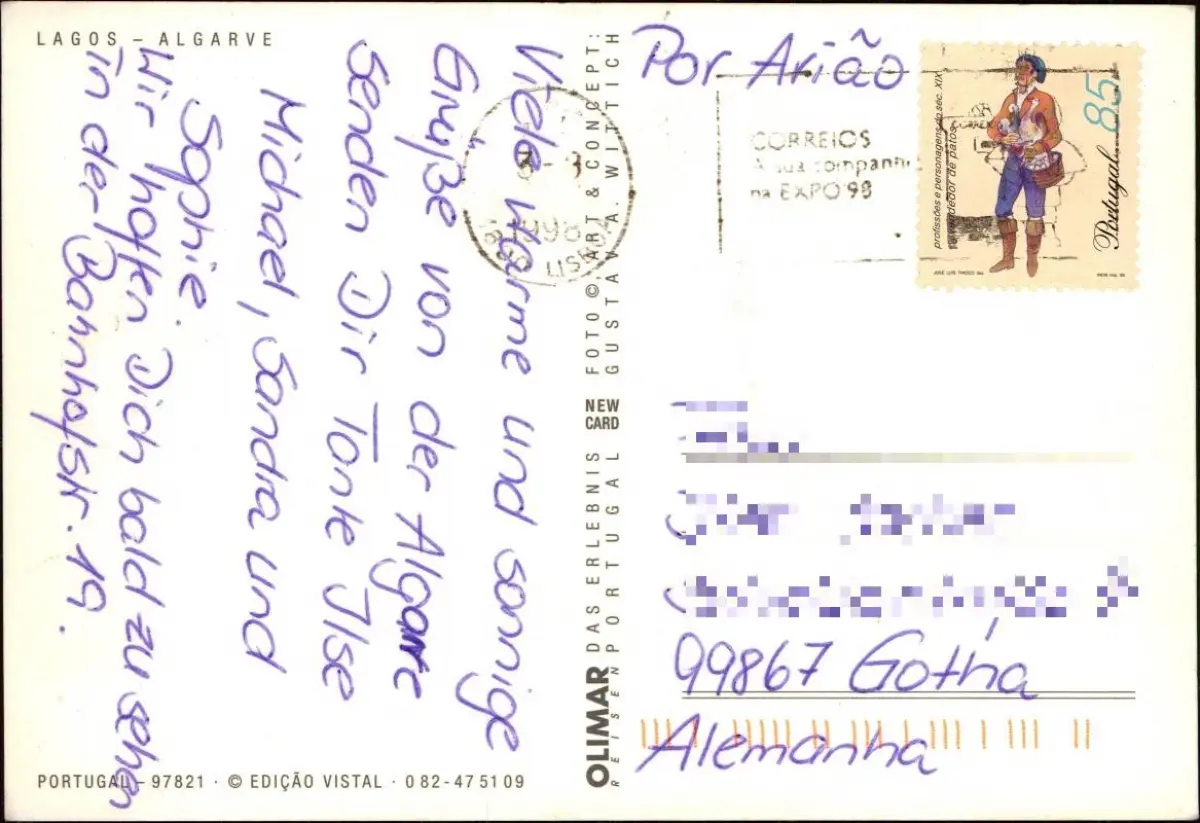 LAGOS – ALGARVE
Viele warme und sonnige
Grüße von der Algarve
senden Dir Tante Ilse
Michael, Sandra und
Sophie.
Wir hoffen Dich bald zu sehen
in der Bahnhofstr. 19.
PORTUGAL – 97821 · © EDIÇÃO VISTAL · 0 82 - 47 51 09
FOTO © ART & CONCEPT:
GUSTAV A. WITTICH
NEW
CARD
OLIMAR DAS ERLEBNIS
REISEN PORTUGAL
Por Arião
CORREIOS
A sua companhi
na EXPO'98
1998
LISBOA
profissões e personagens do séc. XIX
vendedor de patos
85
Portugal
99867 Gotha
Alemanha